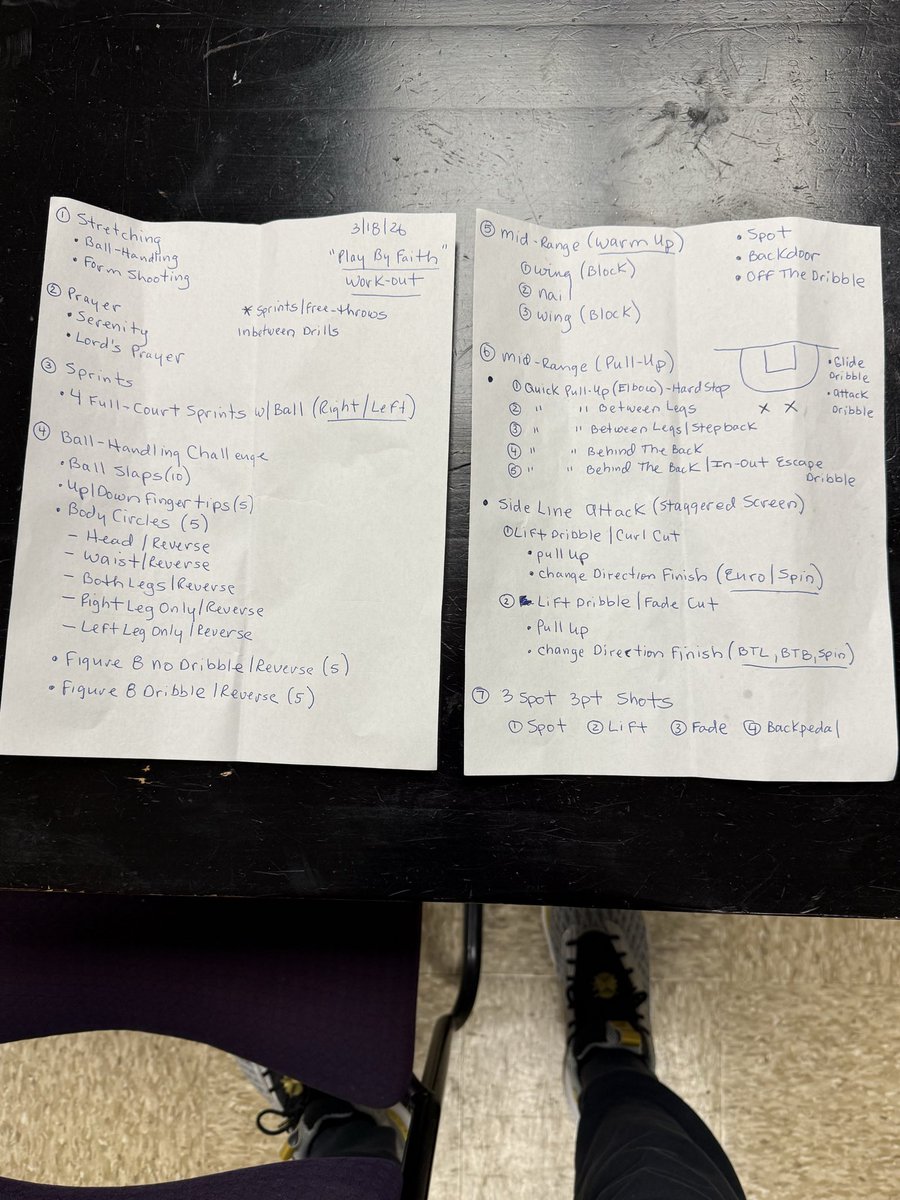 ① Stretching
• Ball-Handling
• Form Shooting
3/18/26
"Play By Faith"
Work-out
* Sprints/free-throws
inbetween Drills
② Prayer
• Serenity
• Lord's Prayer
③ Sprints
• 4 Full-Court Sprints w/Ball (Right/Left)
④ Ball-Handling Challenge
• Ball Slaps (10)
• Up/Down fingertips (5)
• Body Circles (5)
– Head/Reverse
– Waist/Reverse
– Both Legs/Reverse
– Right Leg Only/Reverse
– Left Leg Only/Reverse
• Figure 8 no Dribble/Reverse (5)
• Figure 8 Dribble/Reverse (5)
⑤ Mid-Range (Warm Up)
① Wing (Block)
② nail
③ Wing (Block)
• Spot
• Backdoor
• Off The Dribble
⑥ Mid-Range (Pull-Up)
• Glide
Dribble
• attack
Dribble
x x
• ① Quick Pull-Up (Elbow) - Hard Stop
② " " Between Legs
③ " " Between Legs/Stepback
④ " " Behind The Back
⑤ " " Behind The Back/In-Out Escape
Dribble
• Side Line attack (Staggered Screen)
① Lift Dribble/Curl Cut
• pull up
• change Direction Finish (Euro/Spin)
② Lift Dribble/Fade Cut
• Pull Up
• change Direction Finish (BTL, BTB, Spin)
⑦ 3 Spot 3pt Shots
① Spot ② Lift ③ Fade ④ Backpedal